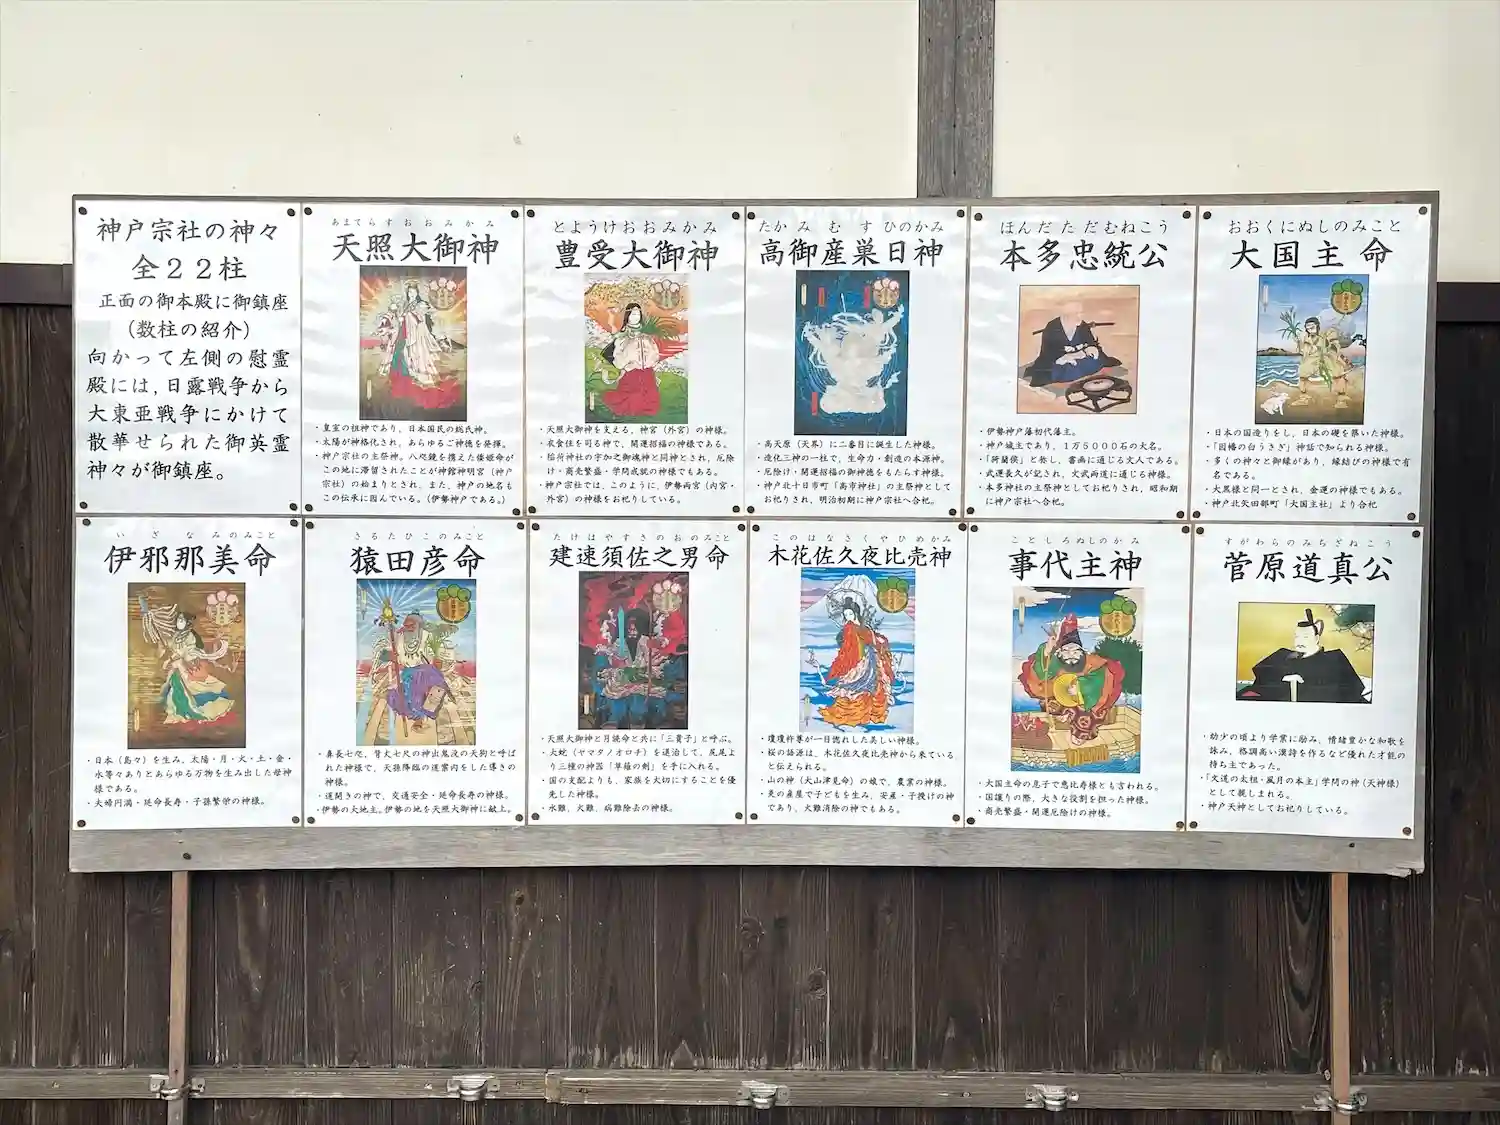 神戸宗社の神々
全２２柱
正面の御本殿に御鎮座
（数柱の紹介）
向かって左側の慰霊
殿には，日露戦争から
大東亜戦争にかけて
散華せられた御英霊
神々が御鎮座。
あまてらすおおみかみ
天照大御神
・皇室の祖神であり、日本国民の総氏神。
・太陽が神格化され、あらゆるご神徳を発揮。
・神戸宗社の主祭神。八咫鏡を携えた倭姫命が
この地に滞留されたことが神館神明宮（神戸
宗社）の始まりとされ、また、神戸の地名も
この伝承に因んでいる。（伊勢神戸である。）
とようけおおみかみ
豊受大御神
・天照大御神を支える、神宮（外宮）の神様。
・衣食住を司る神で、開運招福の神様である。
・稲荷神社の宇加之御魂神と同神とされ、厄除
け・商売繁盛・学問成就の神様でもある。
・神戸宗社では、このように、伊勢両宮（内宮・
外宮）の神様をお祀りしている。
たかみむすひのかみ
高御産巣日神
・高天原（天界）に二番目に誕生した神様。
・造化三神の一柱で、生命力・創造の本源神。
・厄除け・開運招福の御神徳をもたらす神様。
・神戸北十日市町「高市神社」の主祭神として
お祀りされ、明治初期に神戸宗社へ合祀。
ほんだただむねこう
本多忠統公
・伊勢神戸藩初代藩主。
・神戸城主であり、１万５０００石の大名。
・「猗蘭侯」と称し、書画に通じる文人である。
・武運長久が記され、文武両道に通じる神様。
・本多神社の主祭神としてお祀りされ、昭和期
に神戸宗社へ合祀。
おおくにぬしのみこと
大国主命
・日本の国造りをし、日本の礎を築いた神様。
・「因幡の白うさぎ」神話で知られる神様。
・多くの神々と御縁があり、縁結びの神様で有
名である。
・大黒様と同一とされ、金運の神様でもある。
・神戸北矢田部町「大国主社」より合祀
いざなみのみこと
伊邪那美命
・日本（島々）を生み、太陽・月・火・土・金・
水等々ありとあらゆる万物を生み出した母神
様である。
・夫婦円満・延命長寿・子孫繁栄の神様。
さるたひこのみこと
猿田彦命
・鼻長七咫、背丈七尺の神出鬼没の天狗と呼ば
れた神様で、天孫降臨の道案内をした導きの
神様。
・道開きの神で、交通安全・延命長寿の神様。
・伊勢の大地主。伊勢の地を天照大御神に献上。
たけはやすさのおのみこと
建速須佐之男命
・天照大御神と月読命と共に「三貴子」と呼ぶ。
・大蛇（ヤマタノオロチ）を退治して、尻尾よ
り三種の神器「草薙の剣」を手に入れる。
・国の支配よりも、家族を大切にすることを優
先した神様。
・水難、火難、病難除去の神様。
このはなさくやひめかみ
木花佐久夜比売神
・瓊瓊杵尊が一目惚れした美しい神様。
・桜の語源は、木花佐久夜比売神から来ている
と伝えられる。
・山の神（大山津見命）の娘で、農業の神様。
・炎の産屋で子どもを生み、安産・子授けの神
であり、火難消除の神でもある。
ことしろぬしのかみ
事代主神
・大国主命の息子で恵比寿様とも言われる。
・国譲りの際、大きな役割を担った神様。
・商売繁盛・開運厄除けの神様。
すがわらのみちざねこう
菅原道真公
・幼少の頃より学業に励み、情緒豊かな和歌を
詠み、格調高い漢詩を作るなど優れた才能の
持ち主であった。
・「文道の太祖・風月の本主」学問の神（天神様）
として親しまれる。
・神戸天神としてお祀りしている。